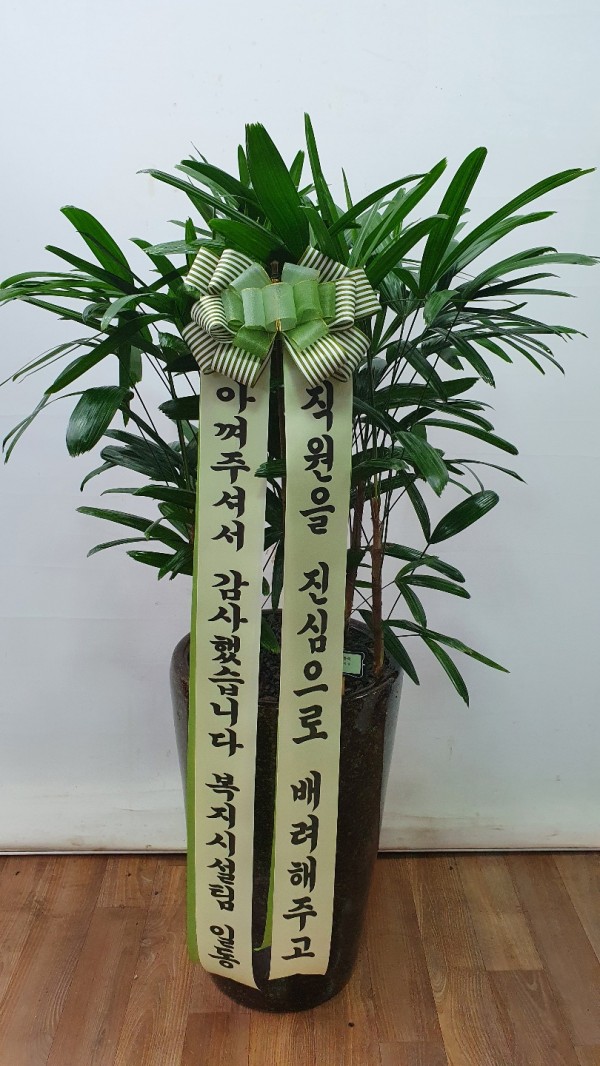 직원을 진심으로 배려해주고
아껴주셔서 감사했습니다 복지시설팀 일동